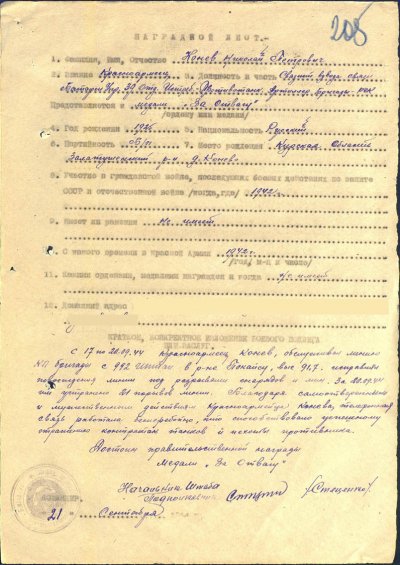 205
НАГРАДНОЙ ЛИСТ.
1. Фамилия, Имя, Отчество Конев Николай Петрович
2. Звание Красноармеец 3. Должность и часть
Представляется к медали „За Отвагу"
/ордену или медали/
4. Год рождения 5. Национальность Русский
6. Партийность 7. Место рождения Курская Область
Золотухинский р-н д. Конево
8. Участие в гражданской войне, последующих боевых действиях по защите
СССР и отечественной войне /когда, где/ с 1942 г
9. Имеет ли ранения не имеет
10. С какого времени в Красной Армии 1942 г.
/год/ м-ц и число/
11. Какими орденами, медалями награжден и когда не имеет
12. Домашний адрес
КРАТКОЕ, КОНКРЕТНОЕ ИЗЛОЖЕНИЕ БОЕВОГО ПОДВИГА
ИЛИ ЗАСЛУГ.
С 17 по 20.09.44 Красноармеец Конев, обслуживая линию
НП бригады с 992 в р-не выс 91,7. исправлял
повреждения линии под разрывами снарядов и мин. За 20.09.44
им устранено 21 порывов линии. Благодаря самоотверженным
и мужественным действиям Красноармейца Конева, телефонная
связь работала бесперебойно, что способствовало успешному
отражению контратак танков и пехоты противника.
Достоин правительственной награды
Медали „За Отвагу"
Начальник Штаба
Подполковник /Стеценко/
"21" Сентября